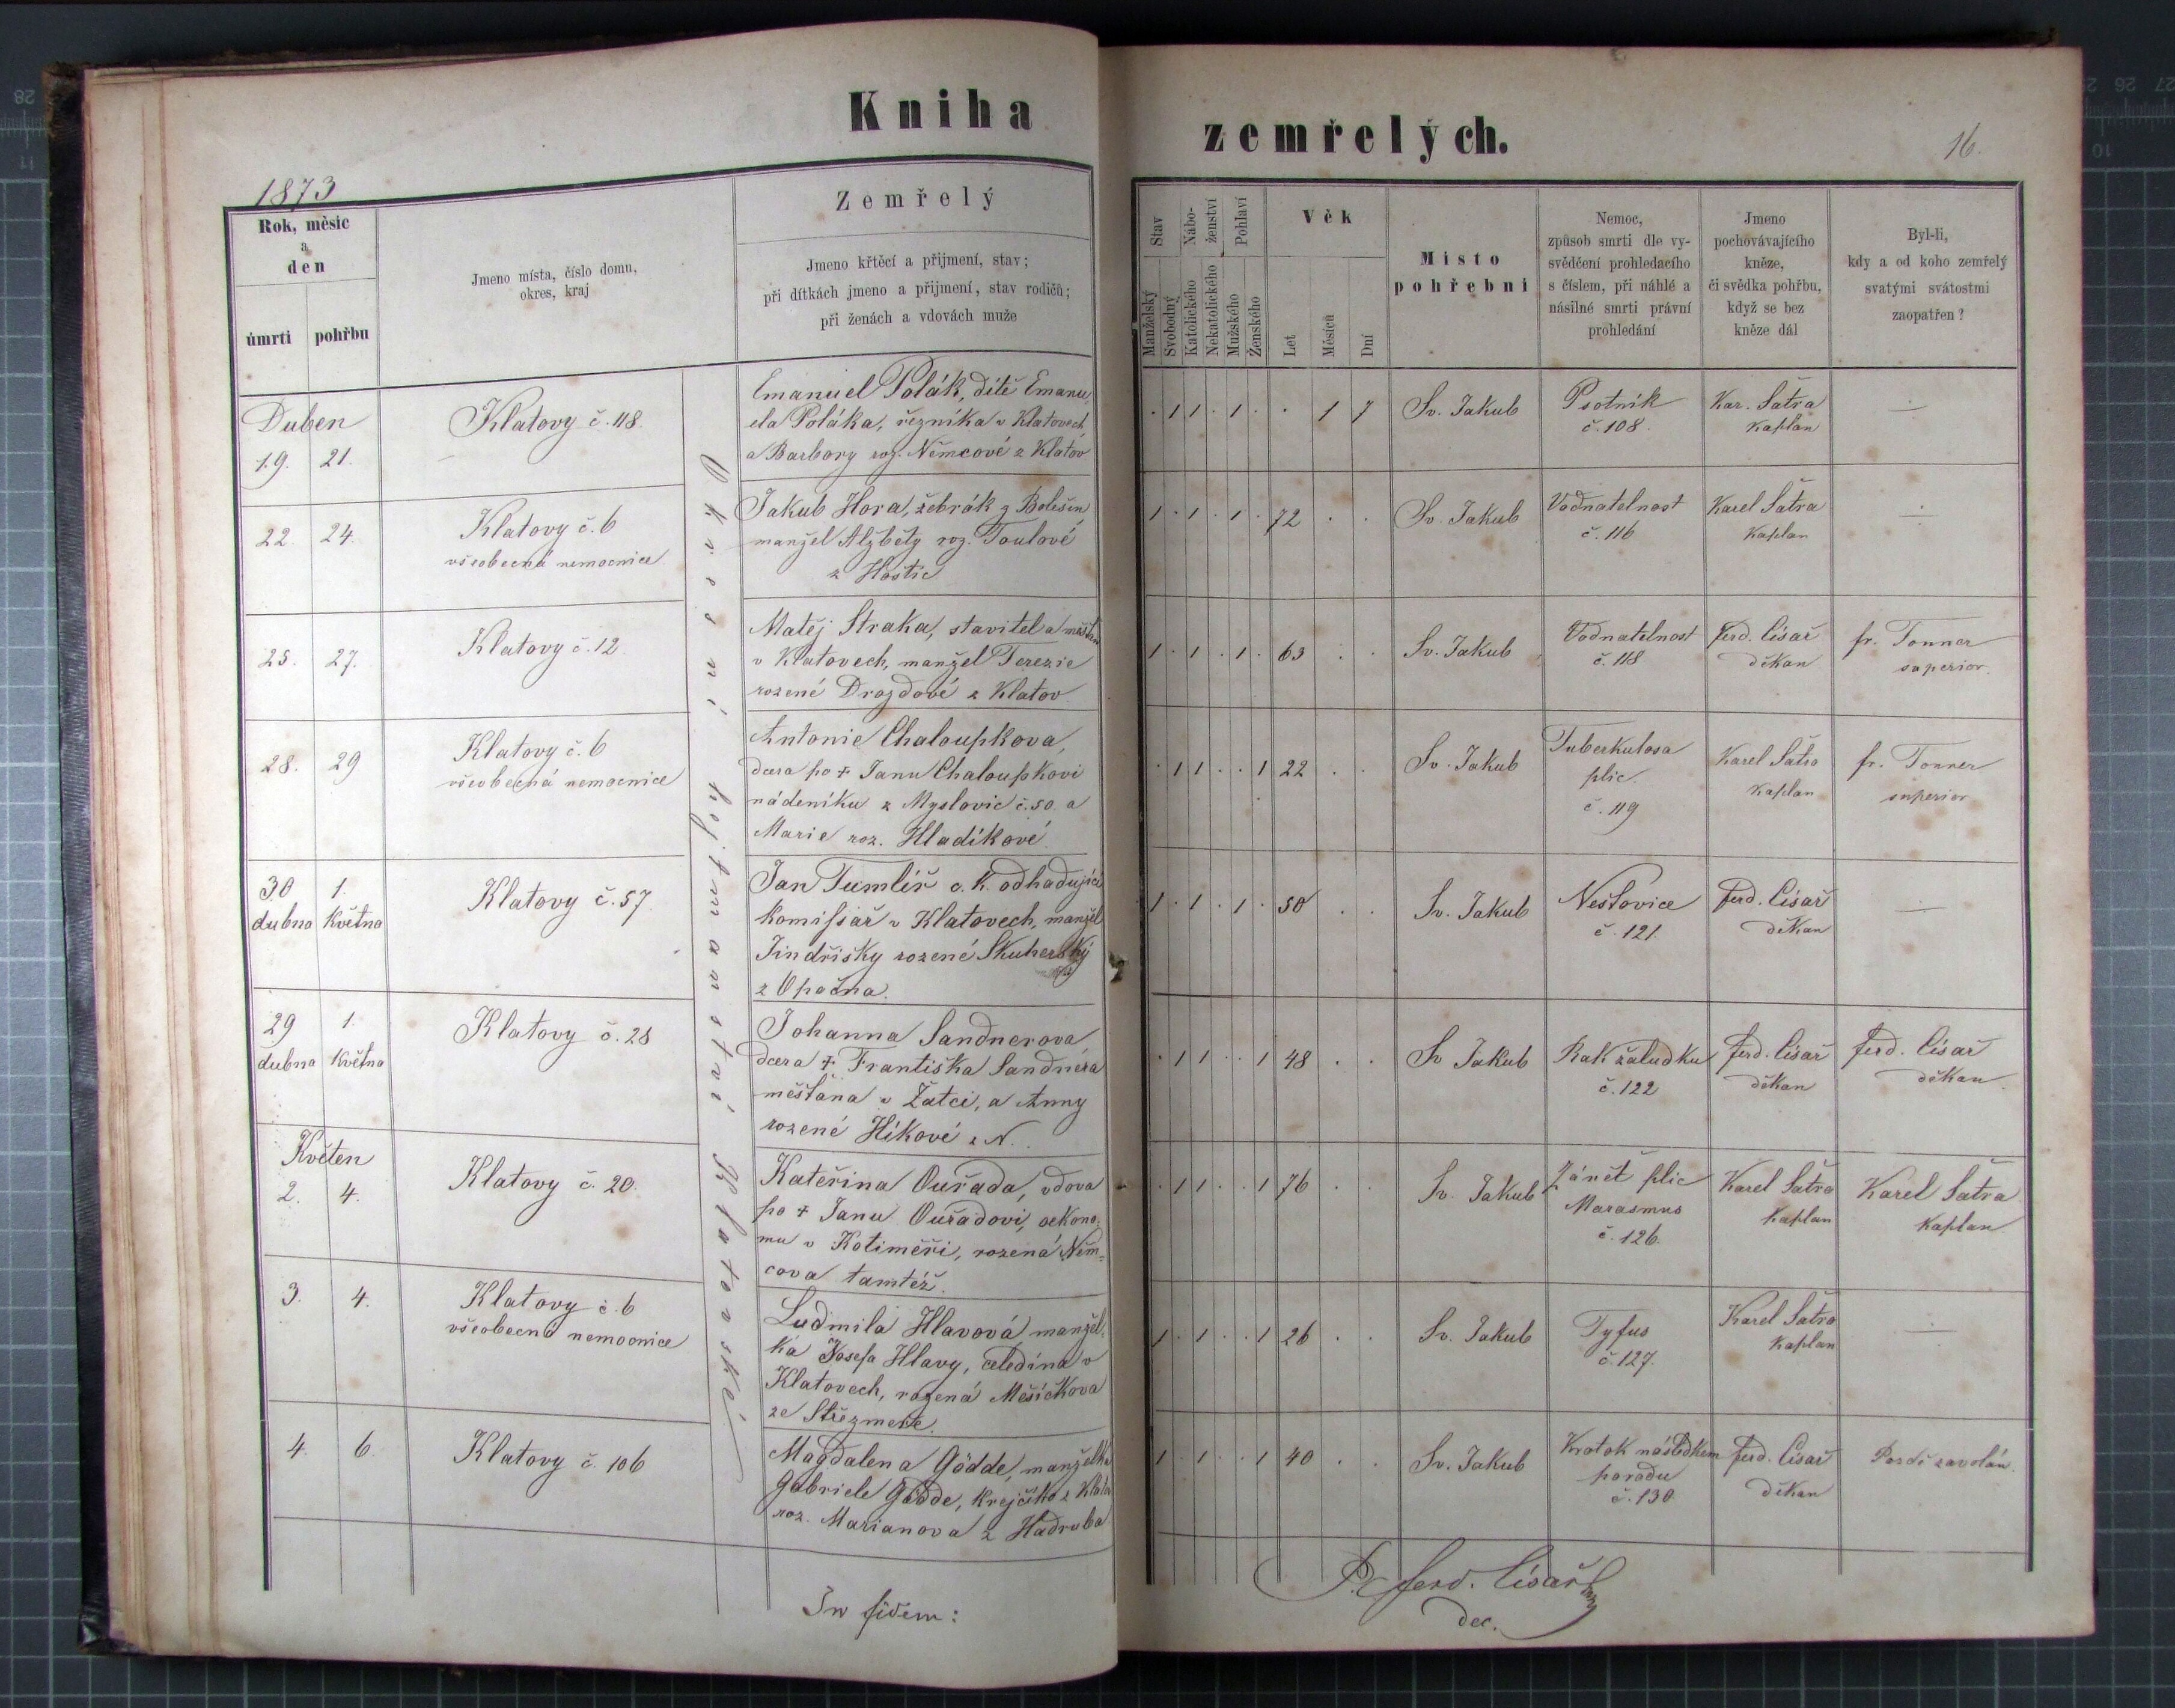 Kniha
zemřelých.
16.
1873
Rok, měsíc
a
den
úmrti
pohřbu
Jmeno místa, číslo domu,
okres, kraj
Zemřelý
Jmeno křtěcí a přijmení, stav;
při dítkách jmeno a přijmení, stav rodičů;
při ženách a vdovách muže
Stav
Nábo-
ženství
Pohlaví
Věk
Manželský
Svobodný
Katolického
Nekatolického
Mužského
Ženského
Let
Měsíců
Dní
Místo
pohřebni
Nemoc,
způsob smrti dle vy-
svědčení prohledacího
s číslem, při náhlé a
násilné smrti právní
prohledání
Jmeno
pochovávajícího
kněze,
či svědka pohřbu,
když se bez
kněze dál
Byl-li,
kdy a od koho zemřelý
svatými svátostmi
zaopatřen?
Okresní hejtmanství Klatovské
Duben
19. 21.
Klatovy č. 118.
Emanuel Polák, dítě Emanu
ela Poláka, řezníka v Klatovech
a Barbory roz. Němcové z Klatov
. 1 1 . 1 . . 1 7
Sv. Jakub
Psotník
č. 108.
Kar. Šatra
Kaplan
22. 24.
Klatovy č. 6
všeobecná nemocnice
Jakub Hora, žebrák z Bolešin
manžel Alžběty roz. Toulové
z Hoštic
1 . 1 . 1 . 72 . .
Sv. Jakub
Vodnatelnost
č. 116
Karel Šatra
Kaplan
25. 27.
Klatovy č. 12
Matěj Straka, stavitel a měšťan
v Klatovech, manžel Terezie
rozené Drozdové z Klatov
1 . 1 . 1 . 63 . .
Sv. Jakub
Vodnatelnost
č. 118
Ferd. Císař
děkan
fr. Tonner
superior.
28. 29
Klatovy č. 6
všeobecná nemocnice
Antonie Chaloupkova,
dcera po + Janu Chaloupkovi
nádeníku z Myslovic č. 50. a
Marie roz. Hladíkové.
. 1 1 . . 1 22 . .
Sv. Jakub
Tuberkulosa
plic.
č. 119
Karel Šatra
Kaplan
fr. Tonner
superior
30 1.
dubna Května
Klatovy č. 57
Jan Tumlíř c. k. odhadující
komissař v Klatovech, manžel
Jindřišky rozené Skuherský
z Opočna.
1 . 1 . 1 . 50 . .
Sv. Jakub
Neštovice
č. 121.
Ferd. Císař
děkan
29 1.
dubna Května
Klatovy č. 28
Johanna Sandnerova
dcera + Františka Sandnera
měšťana v Žatci, a Anny
rozené Híkové z N.
. 1 1 . . 1 48 . .
Sv Jakub
Rak žaludku
č. 122
Ferd. Císař
děkan
Ferd. Císař
děkan.
Květen
2. 4.
Klatovy č. 20.
Kateřina Ouřada, vdova
po + Janu Ouřadovi, oekono-
mu v Kotiměři, rozená Něm-
cova tamtéž.
. 1 1 . . 1 76 . .
Sv. Jakub
Zánět plic
Marasmus
č. 126.
Karel Šatra
kaplan
Karel Šatra
Kaplan.
3. 4.
Klatovy č. 6
všeobecná nemocnice
Ludmila Hlavová, manžel-
ka Josefa Hlavy, čeledína v
Klatovech, rozená Měsíčkova
ze
1 . 1 . . 1 26 . .
Sv. Jakub
Tyfus
č. 127.
Karel Šatra
Kaplan
4. 6.
Klatovy č. 106
Magdalena Gödde, manželka
Gabriele Gödde, Krejčího z Klatov
roz. Marianova z Hadruba
1 . 1 . . 1 40 . .
Sv. Jakub
Krotok následkem
porodu
č. 130
Ferd. Císař
děkan
Pozdě zavolán.
In fidem:
P. Ferd. Císař
dec.